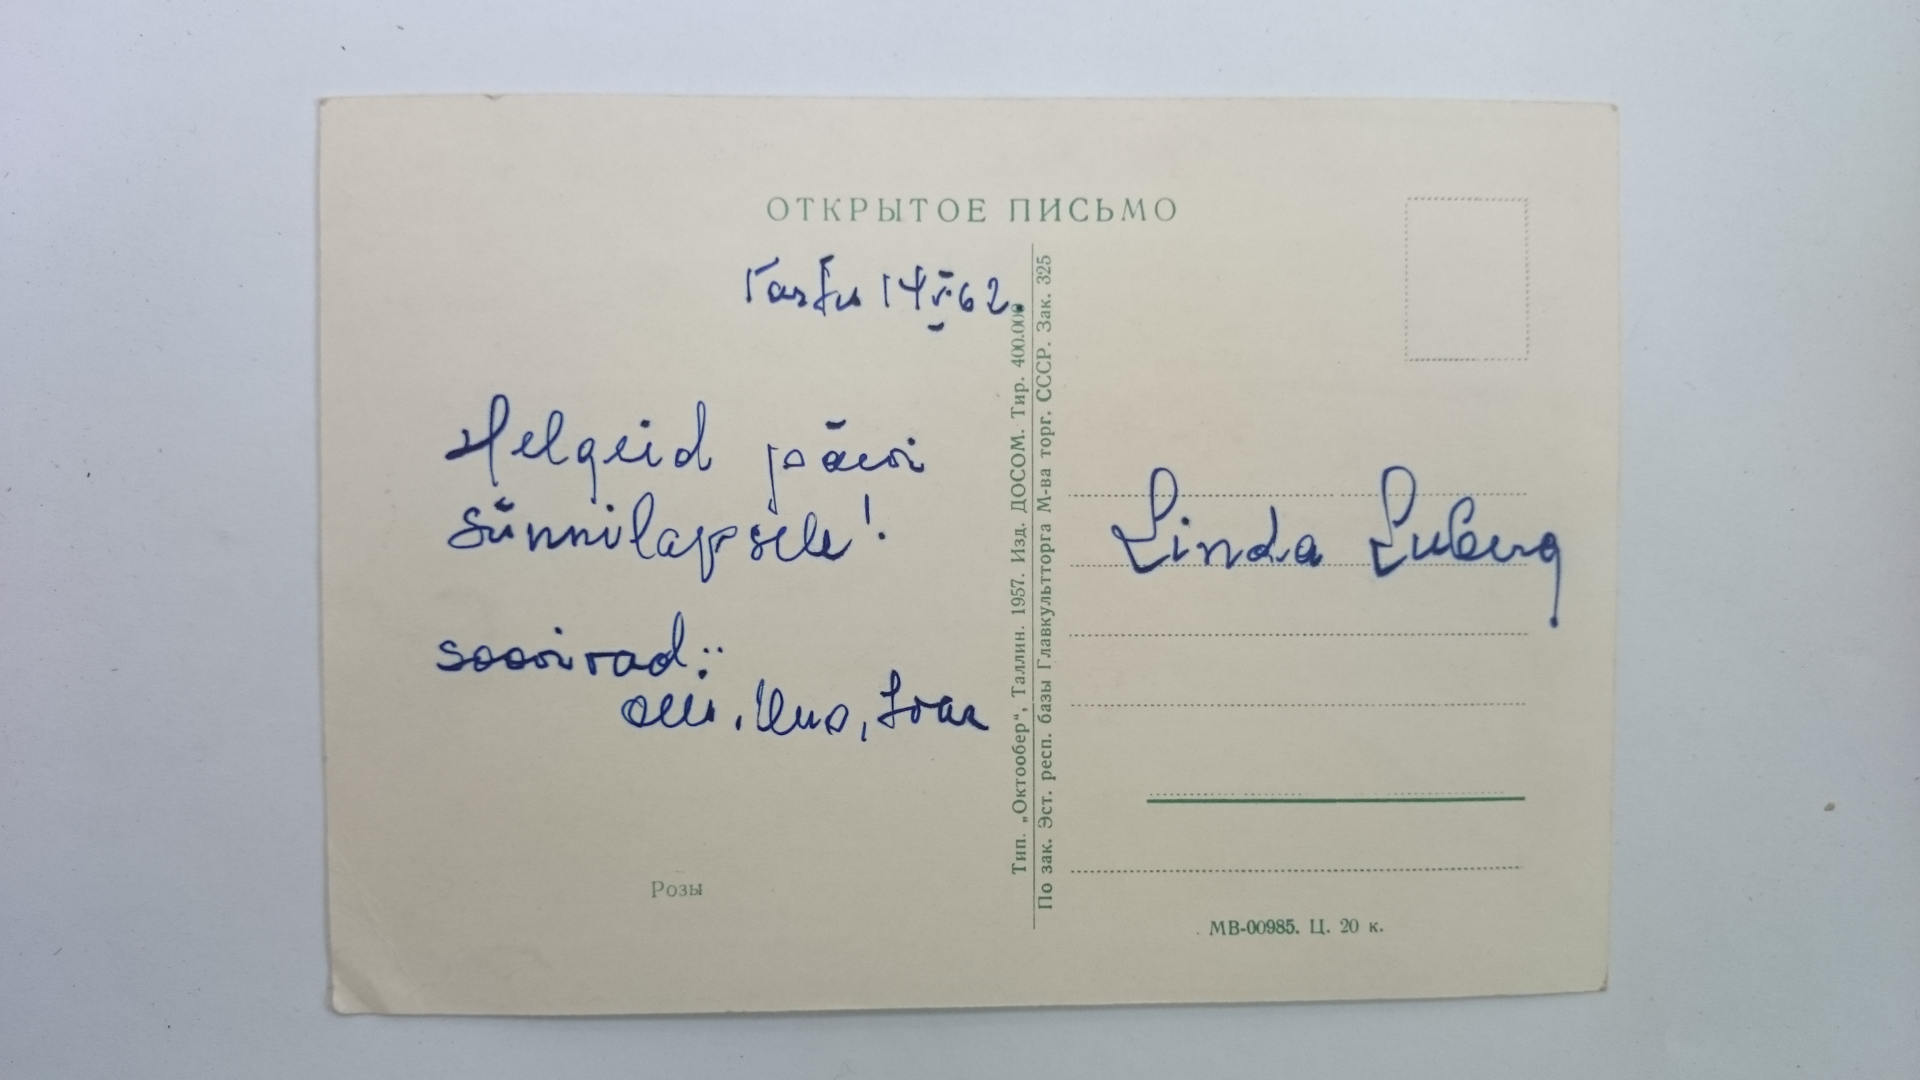 ОТКРЫТОЕ ПИСЬМО
Tartu 14 V 62.
Helgeid päevi
sünnilapsele!
soovivad:
Olli, Uno, Ivar
Linda Luberg
Тип. „Октообер“, Таллин. 1957. Изд. ДОСОМ. Тир. 400.000
По зак. Эст. респ. базы Главкультторга М-ва торг. СССР. Зак. 325
Розы
МВ-00985. Ц. 20 к.